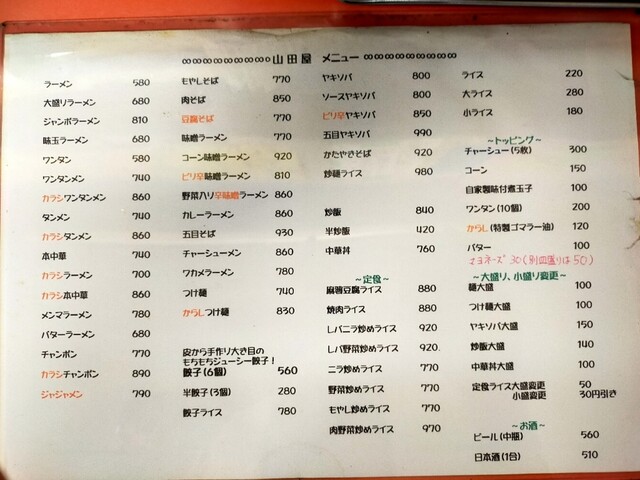 ∞∞∞∞∞∞∞∞∞山田屋 メニュー ∞∞∞∞∞∞∞∞∞
ラーメン 580
大盛りラーメン 680
ジャンボラーメン 810
味玉ラーメン 680
ワンタン 580
ワンタンメン 740
カラシワンタンメン 860
タンメン 740
カラシタンメン 860
本中華 740
カラシラーメン 700
カラシ本中華 860
メンマラーメン 780
バターラーメン 680
チャンポン 770
カラシチャンポン 890
ジャジャメン 790
もやしそば 770
肉そば 850
豆腐そば 770
味噌ラーメン 770
コーン味噌ラーメン 920
ピリ辛味噌ラーメン 810
野菜入り辛味噌ラーメン 860
カレーラーメン 860
五目そば 930
チャーシューメン 860
ワカメラーメン 780
つけ麺 740
からしつけ麺 830
皮から手作り大き目の
もちもちジューシー餃子!
餃子(6個) 560
半餃子(3個) 280
餃子ライス 780
ヤキソバ 800
ソースヤキソバ 800
ピリ辛ヤキソバ 850
五目ヤキソバ 990
かたやきそば 920
炒麺ライス 980
炒飯 840
半炒飯 420
中華丼 760
~定食~
麻婆豆腐ライス 880
焼肉ライス 880
レバニラ炒めライス 920
レバ野菜炒めライス 920
ニラ炒めライス 770
野菜炒めライス 770
もやし炒めライス 770
肉野菜炒めライス 970
ライス 220
大ライス 280
小ライス 180
~トッピング~
チャーシュー(5枚) 300
コーン 150
自家製味付煮玉子 100
ワンタン(10個) 200
からし(特製ゴマラー油) 120
バター 100
マヨネーズ 30(別皿盛りは50)
~大盛り、小盛り変更~
麺大盛 100
つけ麺大盛 100
ヤキソバ大盛 150
炒飯大盛 140
中華丼大盛 100
定食ライス大盛変更 50
小盛変更 30円引き
~お酒~
ビール(中瓶) 560
日本酒(1合) 510